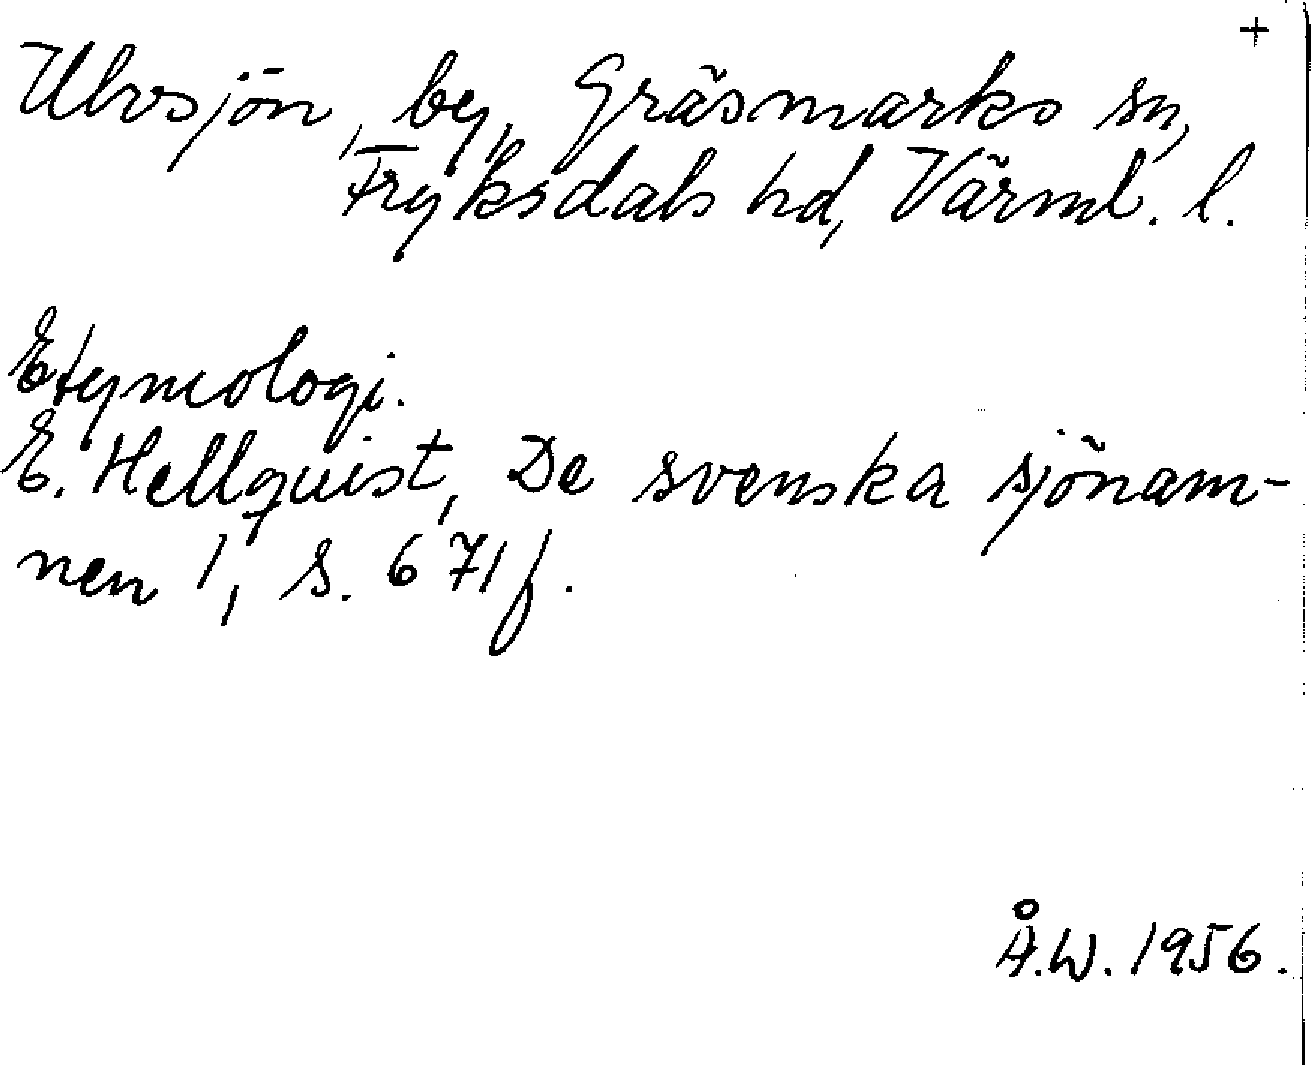 +
Ulvsjön, by, Gräsmarks sn,
Fryksdals hd, Värml. l.
Etymologi.
E. Hellquist, De svenska sjönam-
nen 1, s. 671 f.
Å.W. 1956.